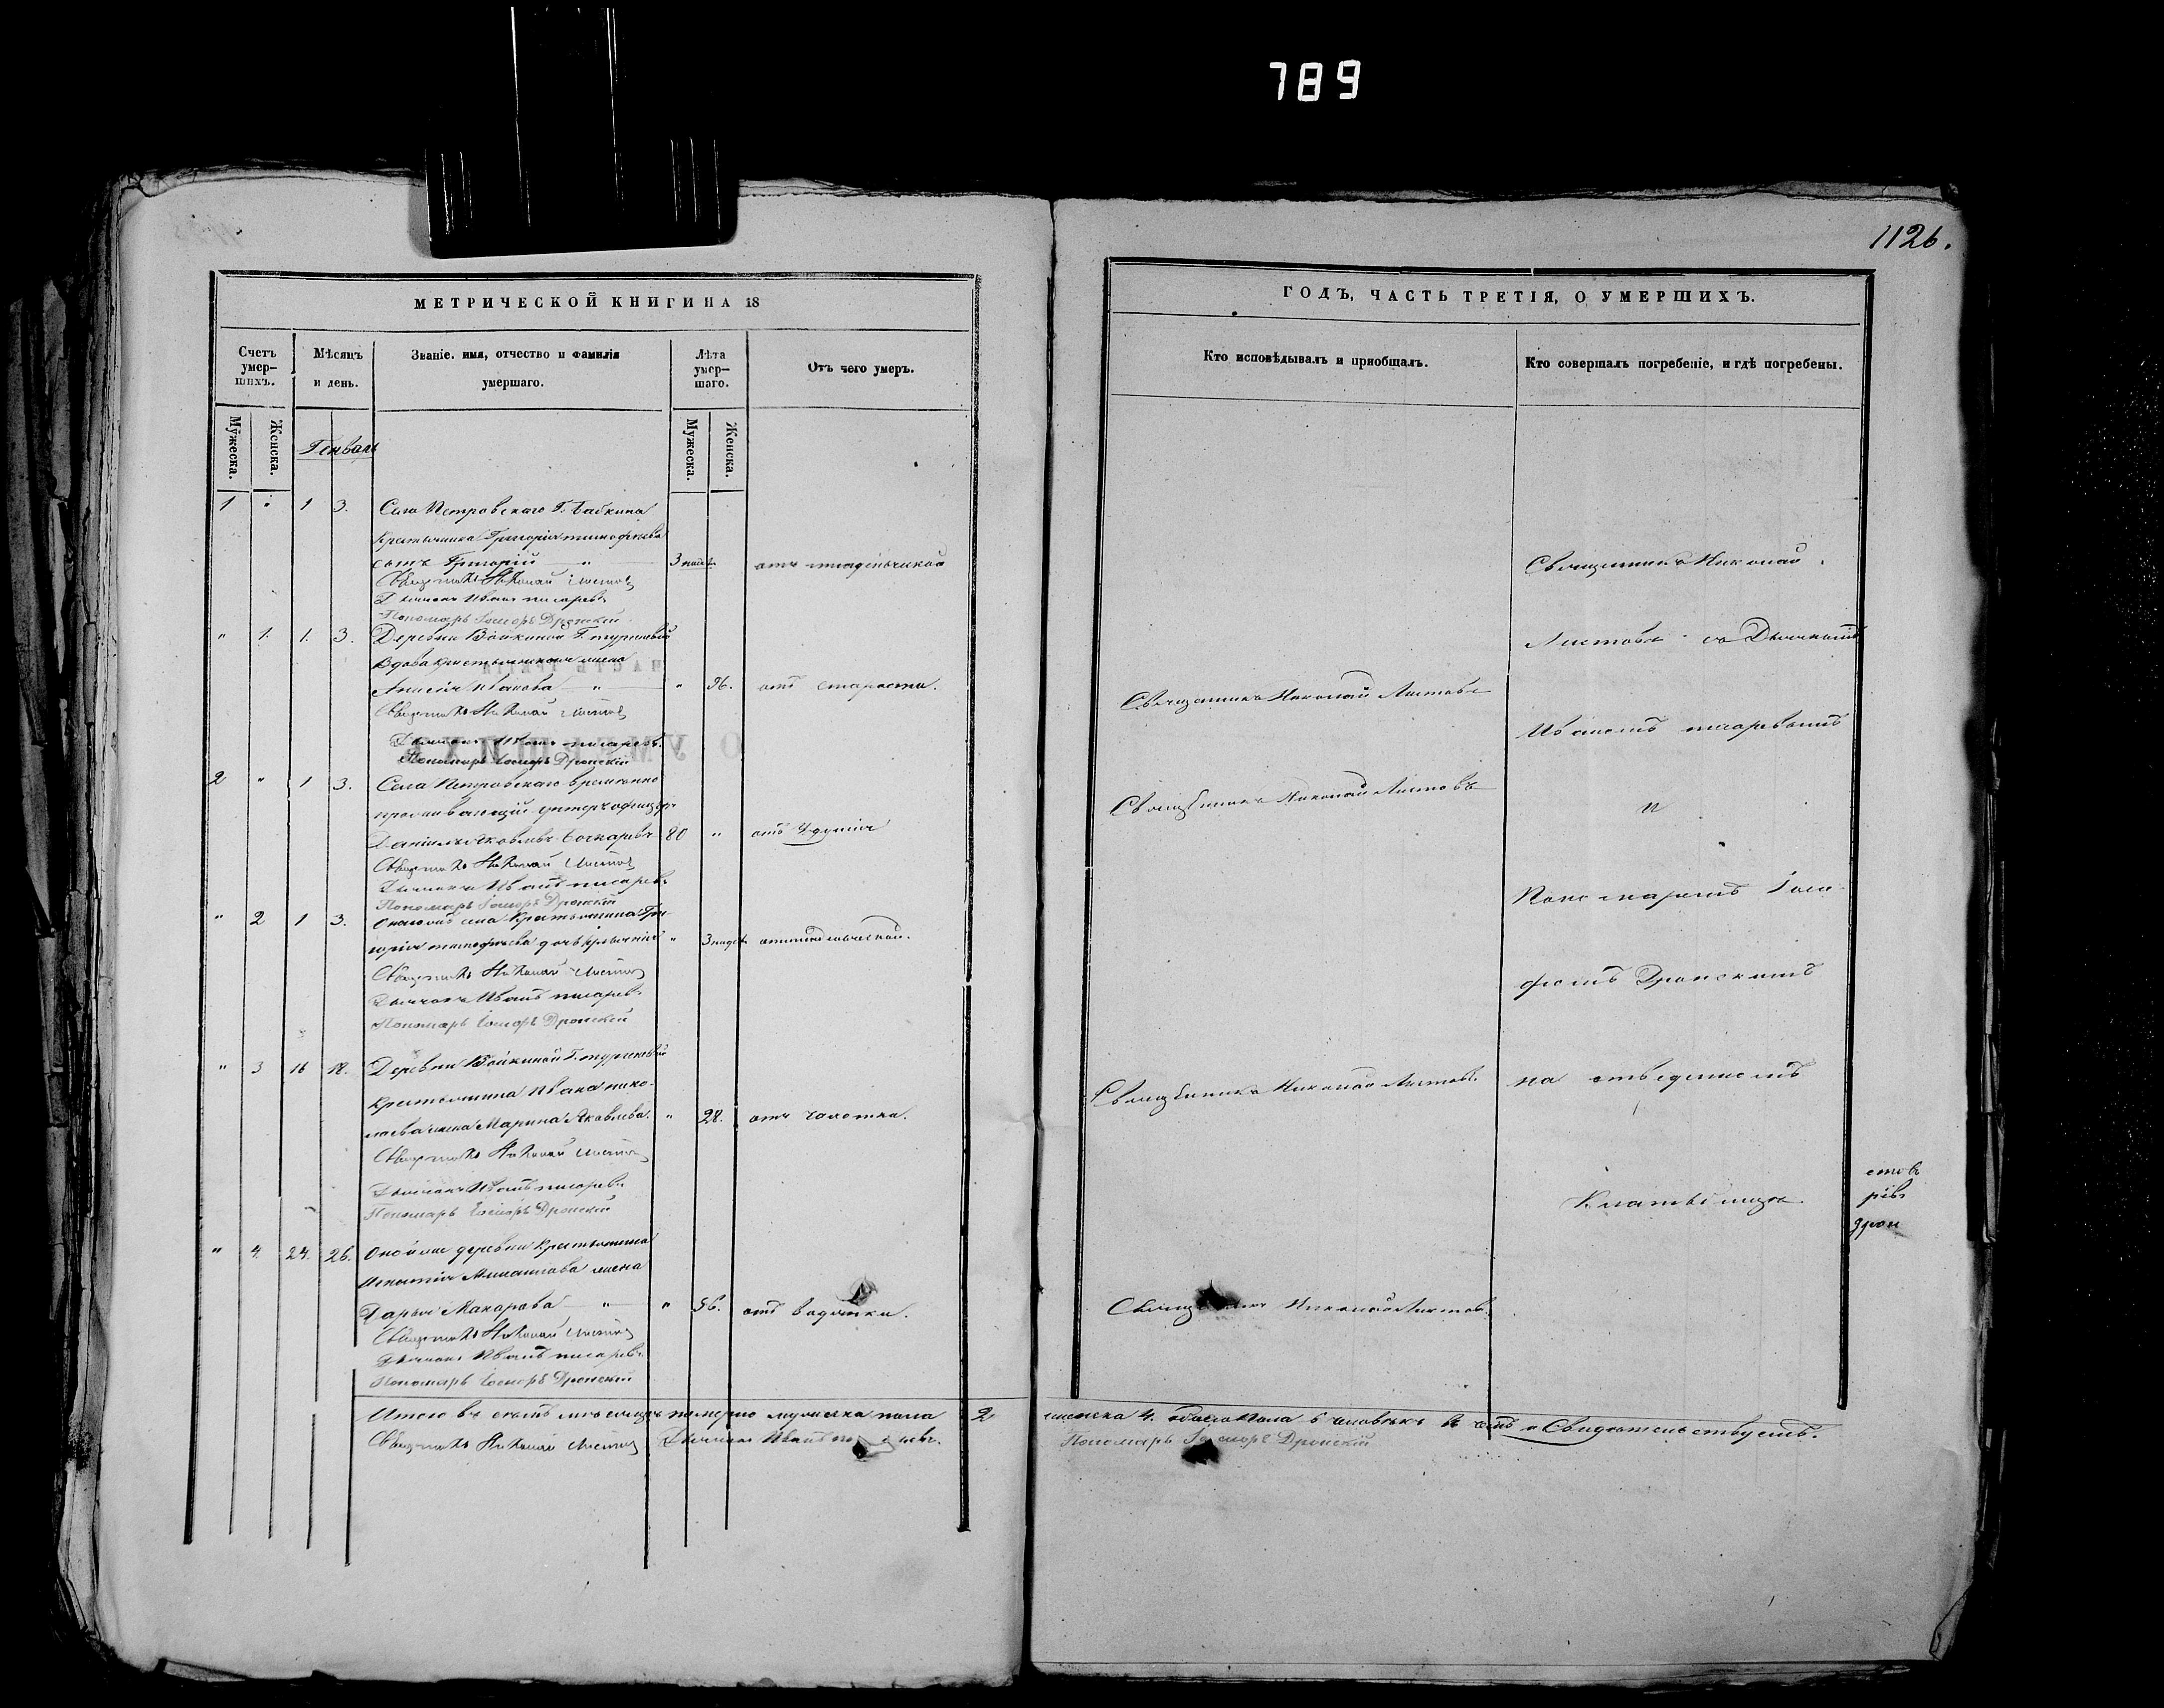 789
1126.
МЕТРИЧЕСКОЙ КНИГИ НА 18
Счетъ умер-шихъ.
Мѣсяцъ и день.
Званіе. имя, отчество и фамилія умершаго.
Лѣта умер-шаго.
Отъ чего умеръ.
Мужеска.
Женска.
Мужеска.
Женска.
Генварь
1 " 1 3. Села Петровскаго Г. Бабкина
крестьянина Григорія тимофѣева
сынъ Григорій — " — 3 недѣл. отъ младенческой
Священникъ Николай Листовъ
Дьячокъ Иванъ писаревъ
Пономарь Іосифъ Дронскій
" 1. 1. 3. Деревни Войкиной Г.
вдова крестьянская жена
Иванова — " — " 96. отъ старости.
Священникъ Николай Листовъ
Дьячокъ Иванъ писаревъ.
Пономарь Іосифъ Дронскій
2 " 1 3. Села Петровскаго временно
проживающій унтеръ офицеръ
Даніилъ Яковлевъ 80 " отъ
Священникъ Николай Листовъ
Дьячокъ Иванъ писаревъ
Пономарь Іосифъ Дронскій
" 2 1 3. Онагожъ села крестьянина Гри-
горія тимофѣева дочь " 3 недѣл. отъ младенческой.
Священникъ Николай Листовъ
Дьячокъ Иванъ писаревъ
Пономарь Іосифъ Дронскій
" 3 16 18. Деревни Войкиной Г.
крестьянина Ивана нико-
лаева жена Марина Яковлева. " 28. отъ чахотки.
Священникъ Николай Листовъ
Дьячокъ Иванъ писаревъ
Пономарь Іосифъ Дронскій
" 4. 24. 26. Онойже деревни крестьянина
жена
Дарья Макарова — " — " 56. отъ водянки.
Священникъ Николай Листовъ
Дьячокъ Иванъ писаревъ
Пономарь Іосифъ Дронскій
Итого въ семъ мѣсяцѣ померло мужеска пола 2
Священникъ Николай Листовъ Дьячокъ Иванъ писаревъ.
ГОДЪ, ЧАСТЬ ТРЕТІЯ, О УМЕРШИХЪ.
Кто исповѣдывалъ и пріобщалъ.
Кто совершалъ погребеніе, и гдѣ погребены.
Священникъ Николай
Листовъ съ Дьячкомъ
Священникъ Николай Листовъ
Иваномъ писаревымъ
Священникъ Николай Листовъ
и
Пономаремъ Іоси-
фомъ Дронскимъ
Священникъ Николай Листовъ.
на отведенномъ
Кладбищѣ
стовъ
рівъ
дрон
Священникъ Николай Листовъ.
женска 4. обоего пола 6 человѣкъ въ чемъ и Свидѣтельствуемъ.
Пономарь Іосифъ Дронскій